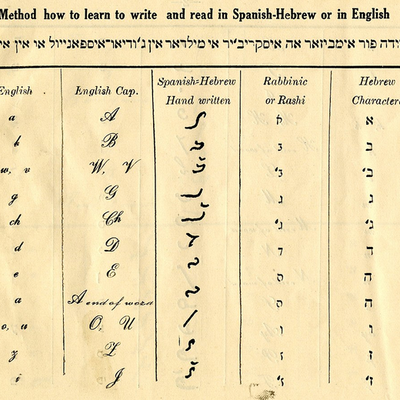 Method how to learn to write and read in Spanish-Hebrew or in English
ודה פור אימביזאר אה איסקריב׳יר אי מילדאר אין ג׳ודיאו־איספאנייול או אין אי
English English Cap. Spanish=Hebrew Hand written Rabbinic or Rashi Hebrew Character
a A א א
b B ב ב
w, v W, V ב׳ ב׳
g G ג ג
ch Ch ג׳ ג׳
d D ד ד
e E ה ה
a A end of word ה ה
o, u O, U ו ו
z Z ז ז
j J ז׳ ז׳